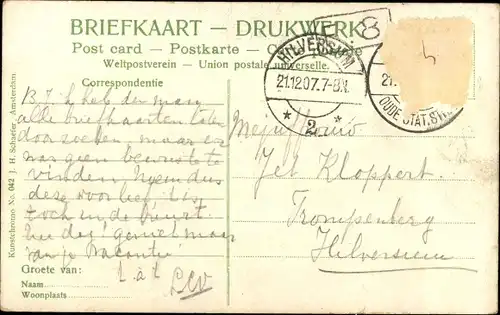 BRIEFKAART — DRUKWERK
Post card — Postkarte —
Weltpostverein — Union postale universelle.
Correspondentie
B. J. ik heb den man
alle briefkaarten laten
doorzoeken, maar er
was geen bewuste te
vinden. Neem dus
deze voor lief.
toch in de buurt.
geniet maar
van je vacantie
Groete van:
Naam
Woonplaats
Kunstchromo No. 042 J. H. Schaefer, Amsterdam.
HILVERSUM
21.12.07.7-8V.
* 2 *
8
4
21.
OUDE STAT.STR
Mejuffrouw
Jet Kloppert.
Trompenberg
Hilversum